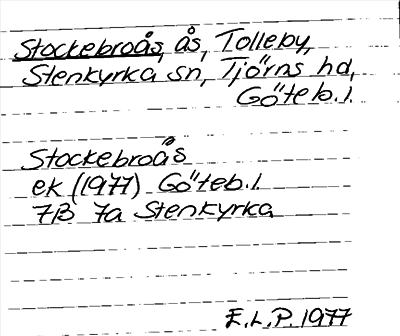 Stockebroås, ås, Tolleby,
Stenkyrka sn, Tjörns hd,
Göteb.l.
Stockebroås
ek (1977) Göteb.l.
7B 7a Stenkyrka
E.L.P. 1977